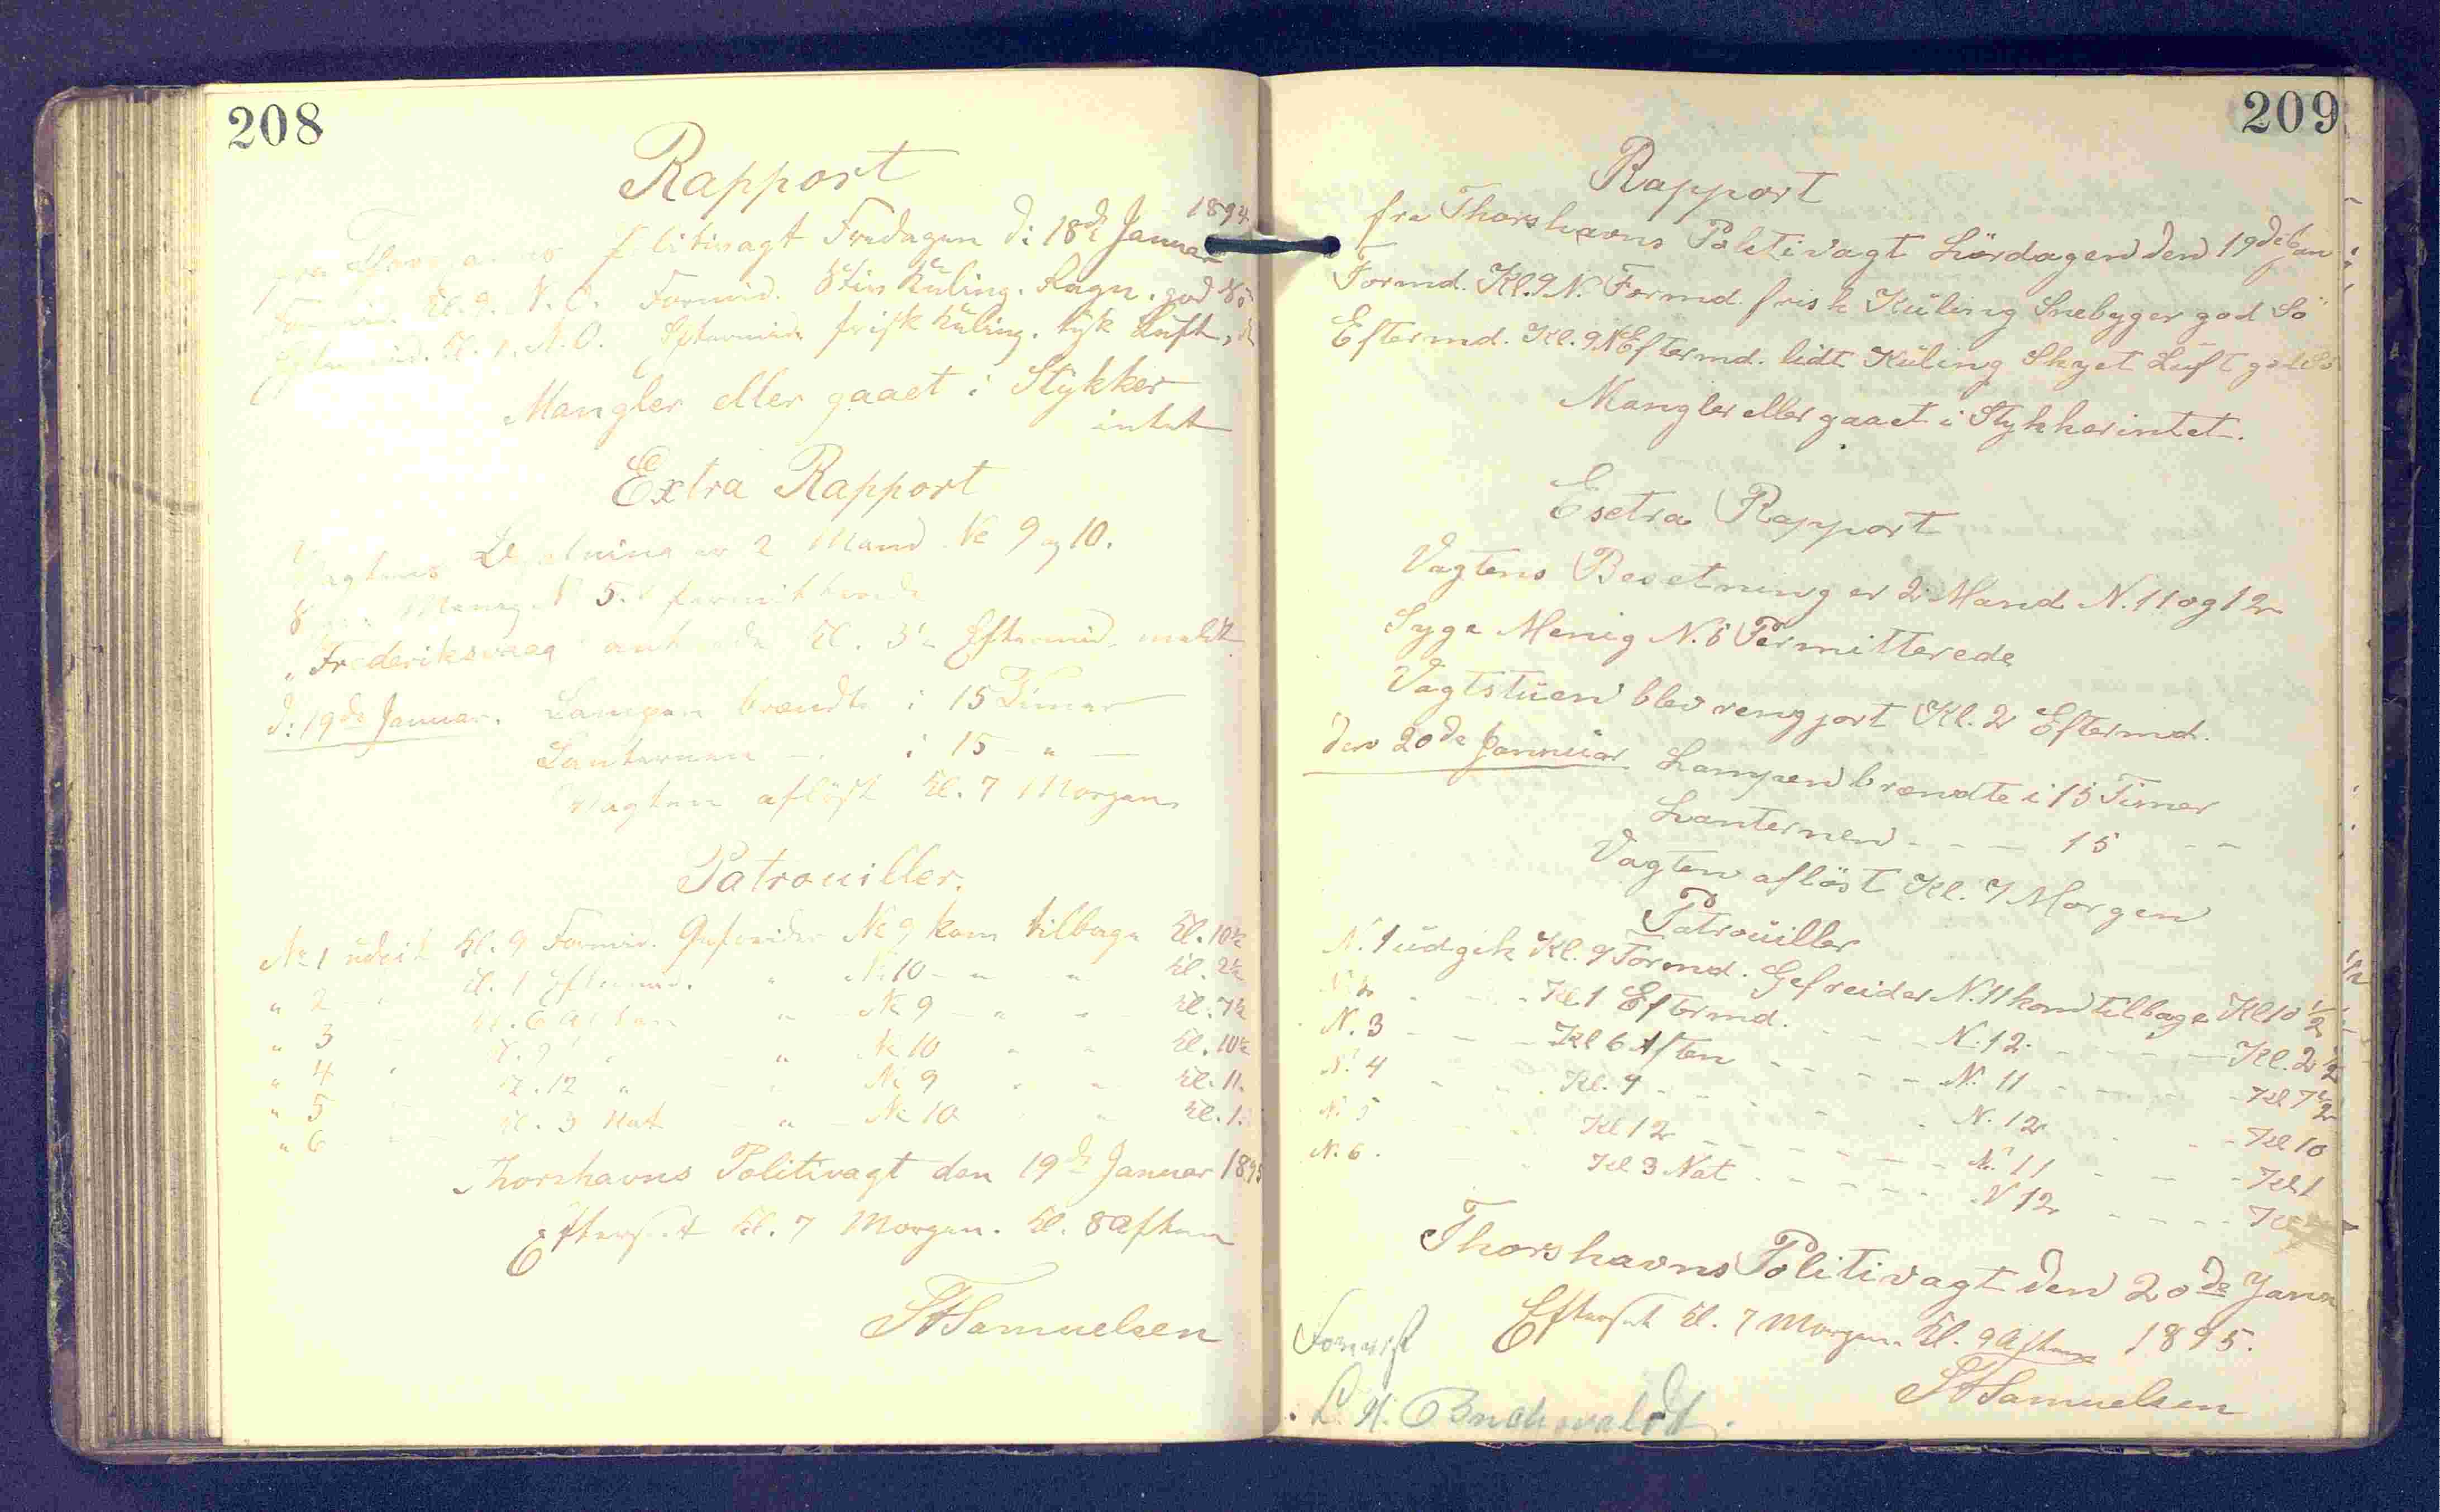 208
Rapport
fra Politivagt Fredagen d: 18de Januar 1894
Kl. 9. N.O. Formid. Stiv Küling. Regn. god Sö
Eftermid. Kl. 1. N.O. Eftermid. frisk Küling. tyk Luft,
Mangler eller gaaet i Stykker
intet
Extra Rapport
Vagtens er 2 Mand No 9 og 10.
Menig N 5. permitterede
"Frederiksvaag" Kl. 3½ Eftermid.
d: 19de Januar. Lampen brændte i 15 Timer
Lanternen — i 15 — " —
Vagten aflöst Kl. 7 Morgen
Patrouiller.
No 1 Kl. 9 Formid. Gefreider No 9 kom tilbage Kl. 10½
" 2 Kl. 1 Eftermid. " No 10 - " " Kl. 2½
" 3 Kl. 6 Aften " No 9 - " " Kl. 7½
" 4 Kl. 9 " " No 10 " " Kl. 10½
" 5 Kl. 12 " No 9 " " Kl.
" 6 Kl. 3 Nat " No 10 " Kl.
Thorshavns Politivagt den 19de Januar 1895
Efterset Kl. 7 Morgen. Kl. 8 Aften
Samuelsen
209
Rapport
fra Thorshavns Politivagt Lördagen den 19de Jan
Formd. Kl. 9 N. Formd. frisk Küling Snebyger god Sö
Eftermd. Kl. 9 N Eftermd. lidt Küling Skyet Luft god Sö
Mangler eller gaaet i Stykker intet.
Esctra Rapport
Vagtens Besetning er 2 Mand N. 11 og 12
Syge Menig N. 5 Permitterede
Vagtstüen blev rengjort Kl. 2 Eftermd.
den 20de Jannüar Lampen brændte i 15 Timer
Lanternen - - - 15 - -
Vagten aflöst Kl. 7 Morgen
Patroüiller
N. 1 üdgik Kl. 9 Formd. Gefreider N. 11 kom tilbage Kl 10 ½
N. 2 - - - Kl. 1 Eftermd. - - - N. 12 - - - Kl. 2 ½
N. 3 - - - Kl 6 Aften - - - N. 11 - - - Kl 7 ½
N. 4 - - - Kl. 9 - - - N. 12 - - - Kl 10
N. 5 - - - Kl 12 - - - N. 11 - - - Kl 1
N. 6 - - - Kl 3 Nat - - - N 12 - - -
Thorshavns Politivagt den 20de Jann
Efterset Kl. 7 Morgen. Kl. 9 Aften 1895.
Samuelsen
Forevist
L. H. Buchwaldt.